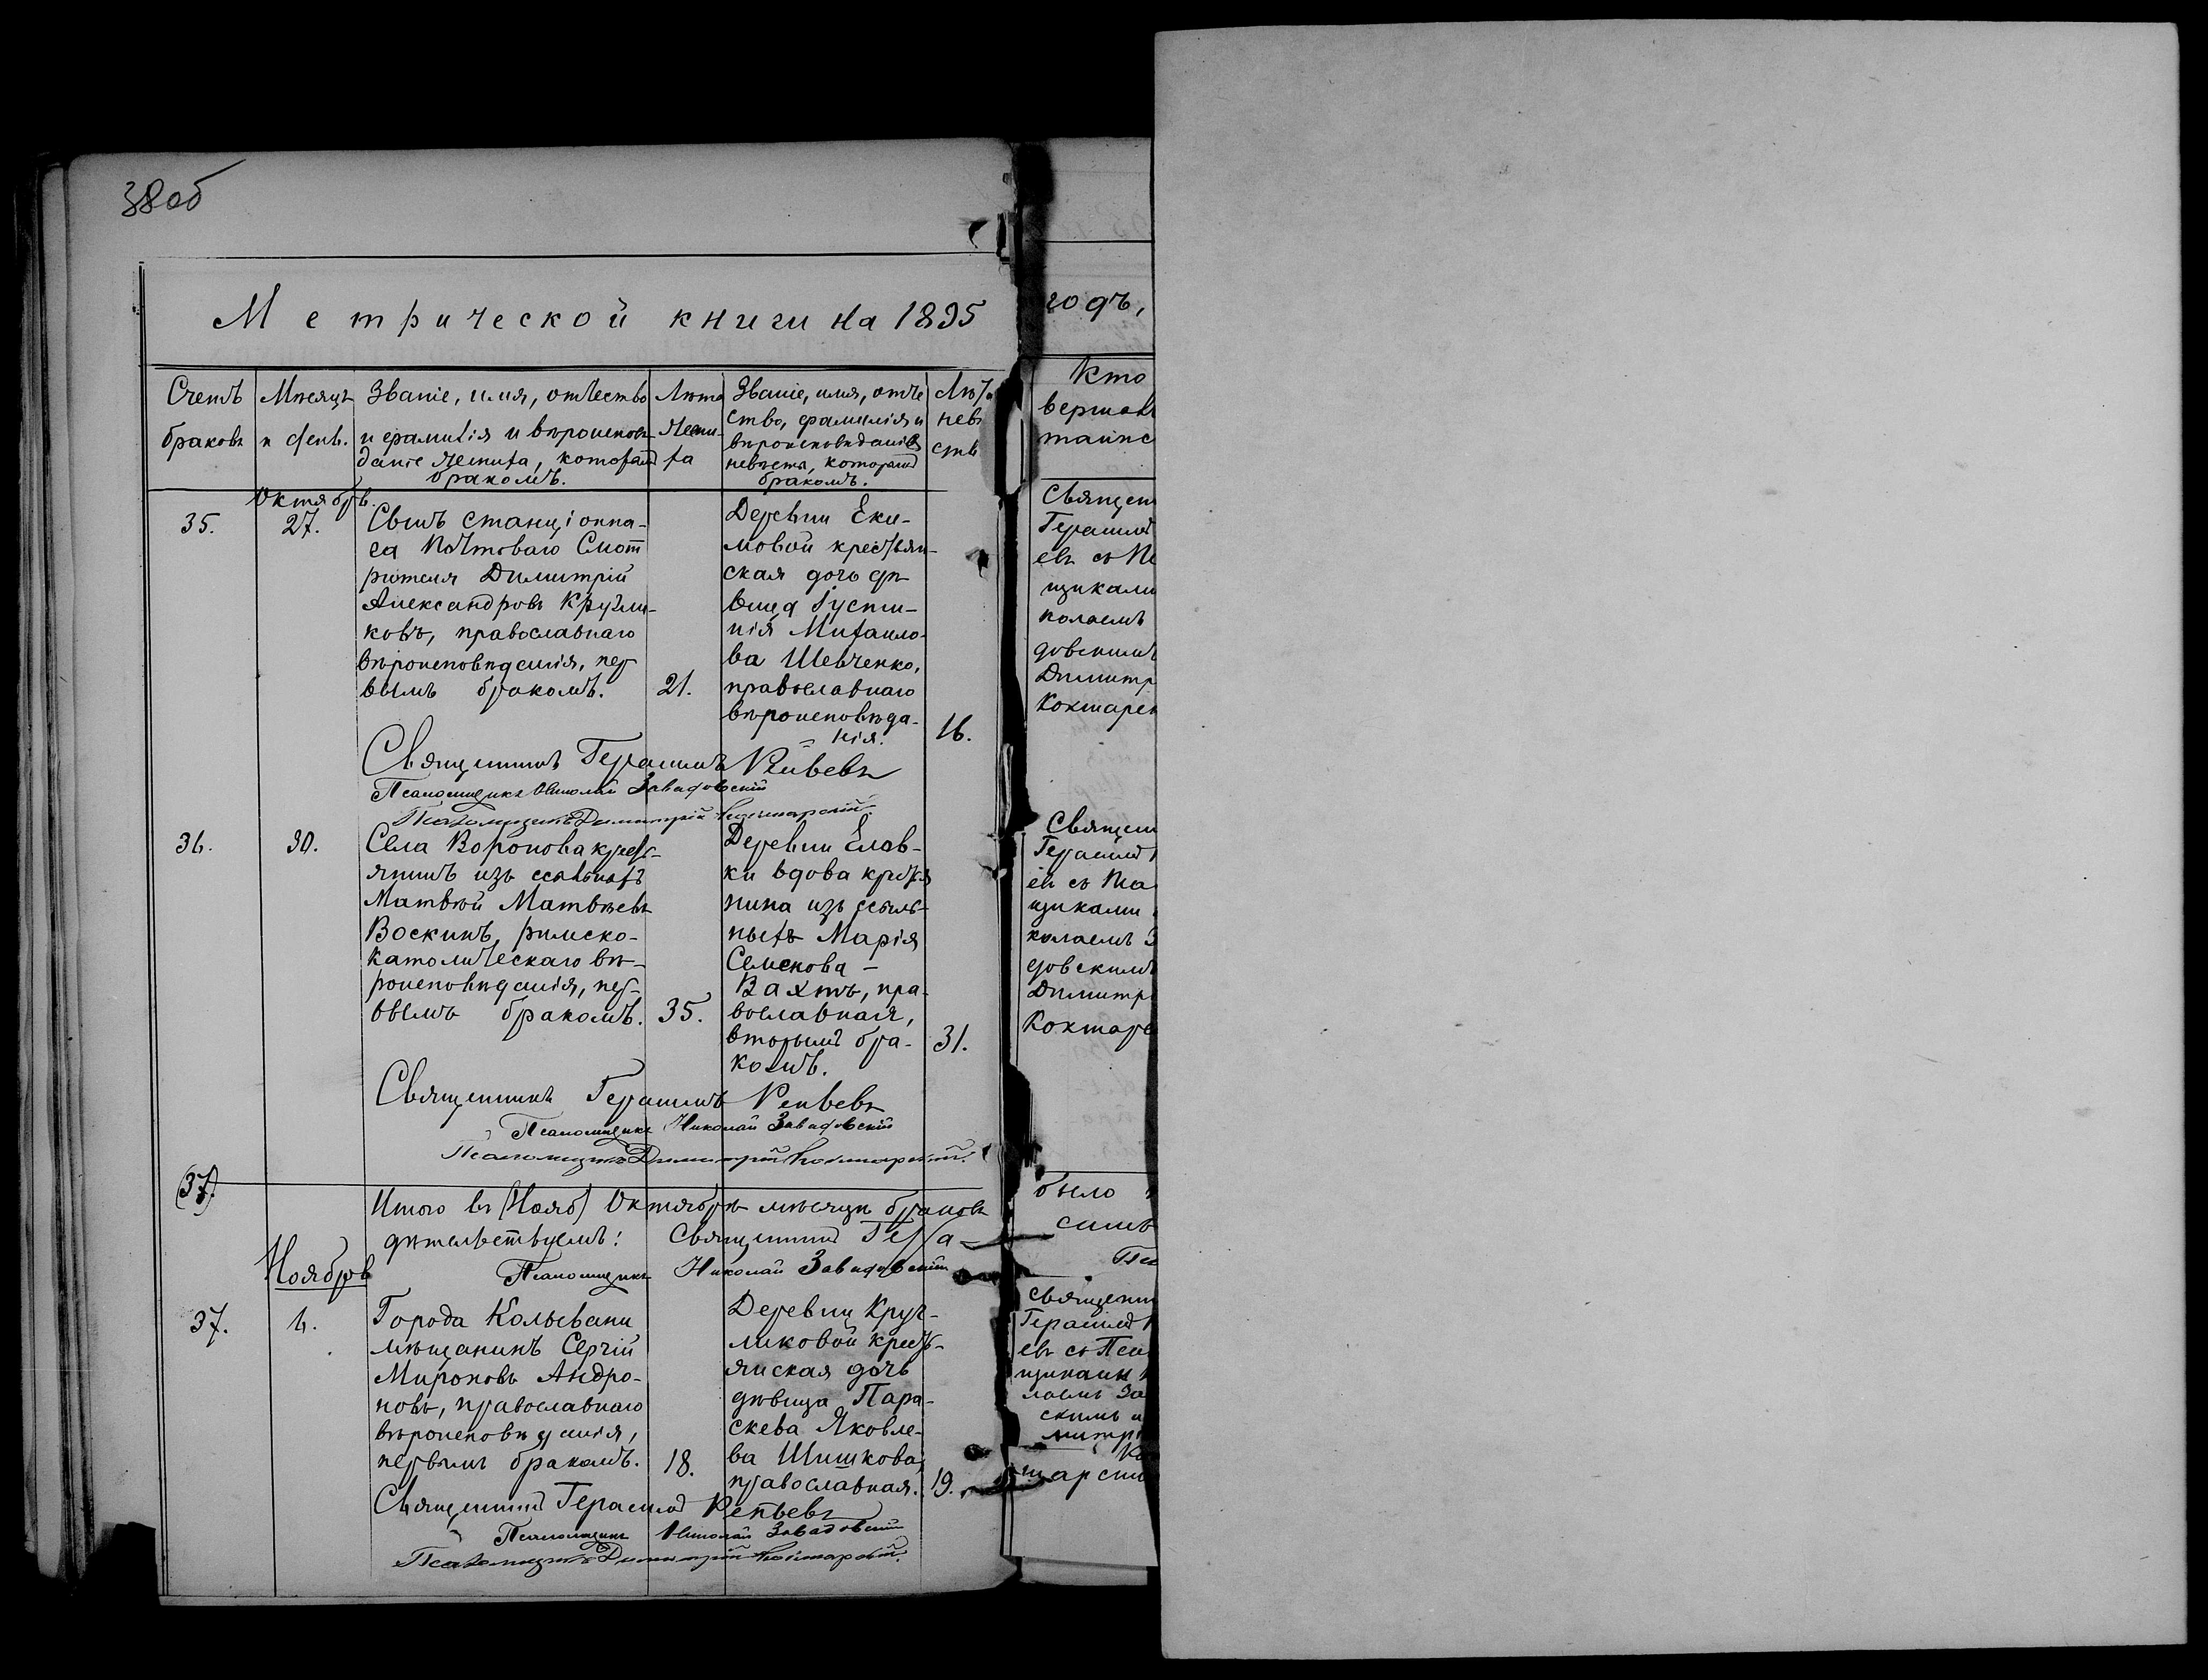 38об
Метрической книги на 1895
годъ,
Счетъ браковъ
Мѣсяцъ и день.
Званіе, имя, отчество
и фамилія и вѣроисповѣ-
даніе жениха, которымъ
бракомъ.
Лѣта
жени-
ха
Званіе, имя, отче
ство, фамилія и
вѣроисповѣданіе
невѣсты, которымъ
бракомъ.
Лѣта
невѣ
сты
Кто
вершалъ
таинс
Октябрь.
35.
27.
Сынъ станціонна-
го Почтоваго Смот
рителя Димитрій
Александровъ Кругли-
ковъ, православнаго
вѣроисповѣданія, пер
вымъ бракомъ.
21.
Деревни Еки-
мовой крестьян-
ская дочь дѣ-
вица Іусти-
нія Михаило-
ва Шевченко,
православнаго
вѣроисповѣда-
нія.
16.
Священ
Герасимъ
евъ съ Пс
щиками
колаемъ
довскимъ
Димитр
Кохтарен
Священникъ Герасимъ Репьевъ
Псаломщикъ Николай Завадовскій
Псаломщикъ Димитрій
36.
30.
Села Воронова кресть-
янинъ изъ ссыльныхъ
Матвѣй Матвѣевъ
Воскинъ, римско-
католическаго вѣ-
роисповѣданія, пер-
вымъ бракомъ.
35.
Деревни Елов-
ки вдова крестья
нина изъ ссыль-
ныхъ Марія
Семенова -
Вахтъ, пра-
вославная,
вторымъ бра-
комъ.
31.
Священ
Герасимъ
евъ съ Пса
щиками
колаемъ З
довскимъ
Димитр
Кохтаре
Священникъ Герасимъ Репьевъ
Псаломщикъ Николай Завадовскій
Псаломщикъ Димитрій
(37.)
Итого въ (Нояб) Октябрѣ мѣсяцѣ браковъ
было
дѣтельствуемъ: Священникъ Гера-
симъ
Псаломщикъ Николай Завадовскій
Пс
Ноябрь
37.
6.
Города Колывани
мѣщанинъ Сергій
Мироновъ Андро-
новъ, православнаго
вѣроисповѣданія,
первымъ бракомъ.
18.
Деревни Круг-
ликовой кресть-
янская дочь
дѣвица Пара-
скева Яковле-
ва Шишкова,
православная.
19.
Священни
Герасимъ
евъ съ Пса
щиками
лаемъ За
скимъ и
митрі
Ко
тарски
Священникъ Герасимъ Репьевъ
Псаломщикъ Николай Завадовскій
Псаломщикъ Димитрій